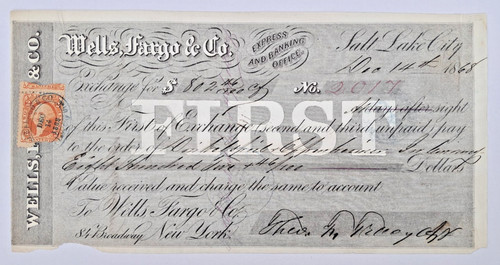 Wells, Fargo & Co.
EXPRESS
AND BANKING
OFFICE
Salt Lake City
Dec 14th 1868
Exchange for $ 802 46/100
No. 2017
FIRST
At days after sight
of this First of Exchange (second and third unpaid) pay
to the order of
Eight Hundred Two & 46/100 Dollars
Value received and charge the same to account
To Wells Fargo & Co.
84 Broadway New York.
Theo. F. Tracy Agt
WELLS, & CO.